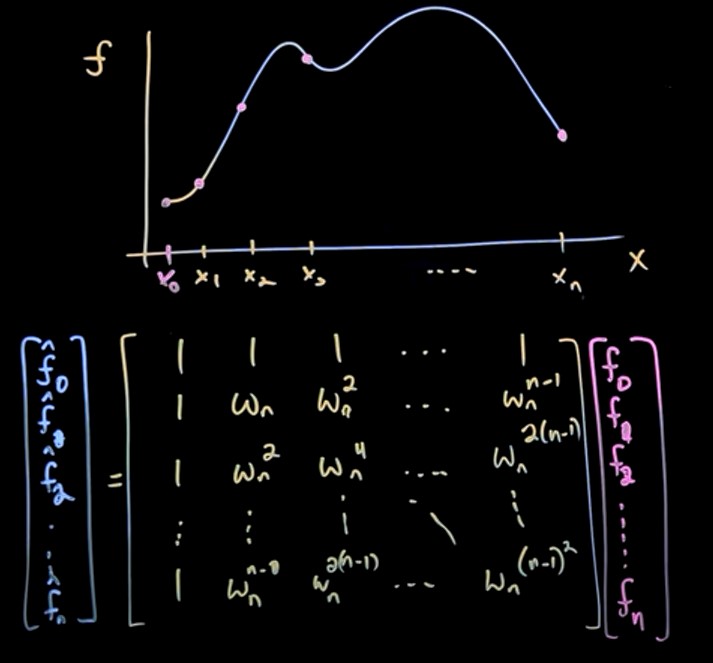 f
x₀ x₁ x₂ x₃ .... xₙ x
[f̂₀ f̂₁ f̂₂ ... f̂ₙ] = [
1 1 1 ... 1
1 ωₙ ωₙ² ... ωₙⁿ⁻¹
1 ωₙ² ωₙ⁴ .... ωₙ²⁽ⁿ⁻¹⁾
⋮ ⋮ ⋮ ⋱ ⋮
1 ωₙⁿ⁻¹ ωₙ²⁽ⁿ⁻¹⁾ ... ωₙ^(n-1)²
] [f₀ f₁ f₂ ...... fₙ]